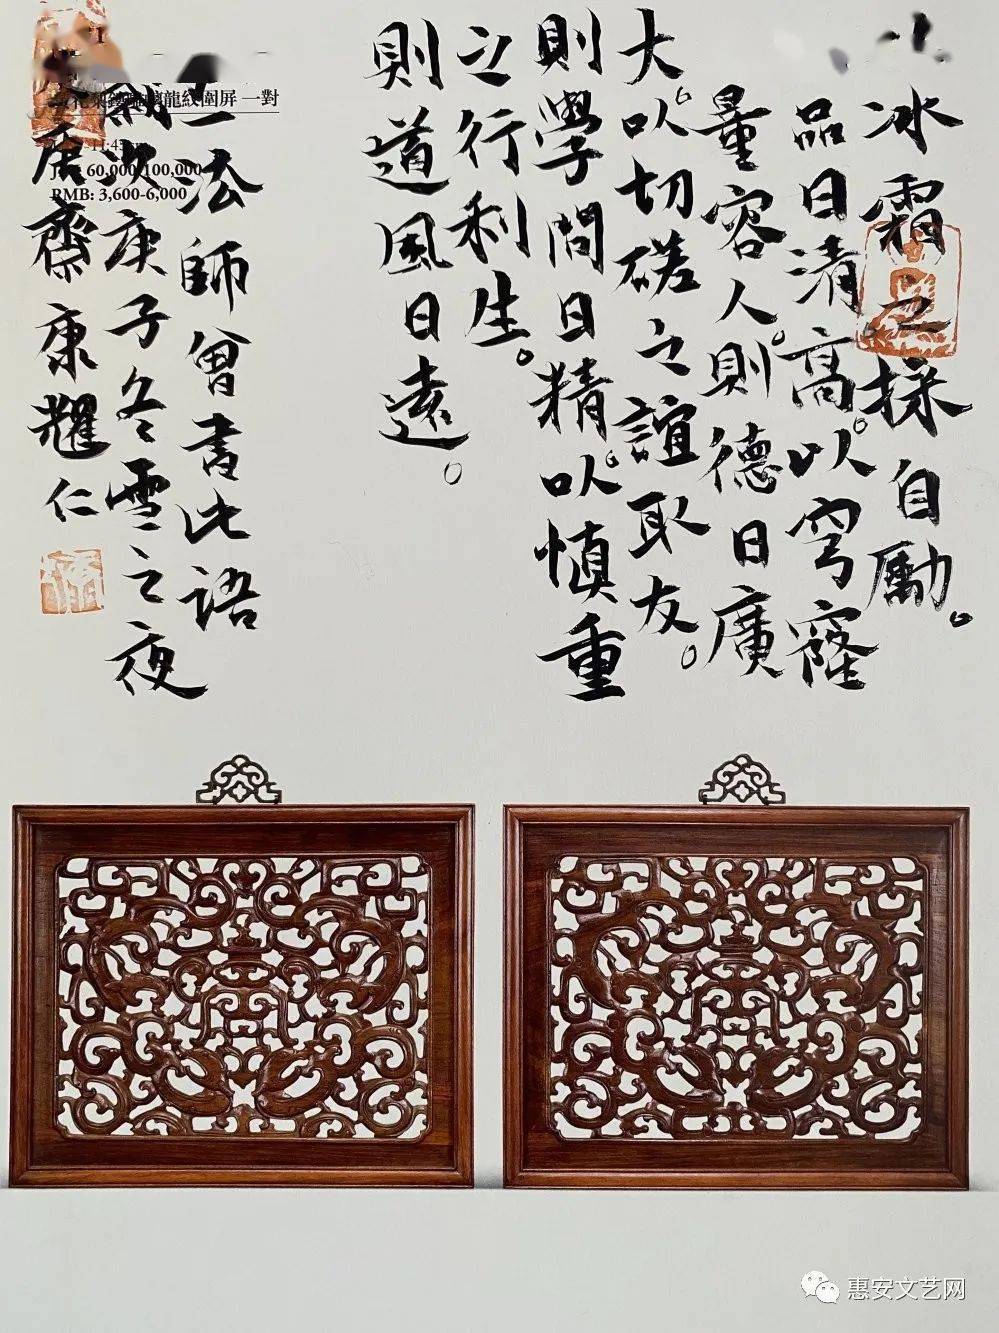 冰霜之操自勵。
品日清高。以穹窿
量容人。則德日廣
大。以切磋之誼取友。
則學問日精。以慎重
之行利生。
則道風日遠。
一法師曾書此語
次庚子冬雪之夜
唐齋康耀仁
龍紋圍屏 一對
60,000-100,000
RMB: 3,600-6,000
惠安文艺网